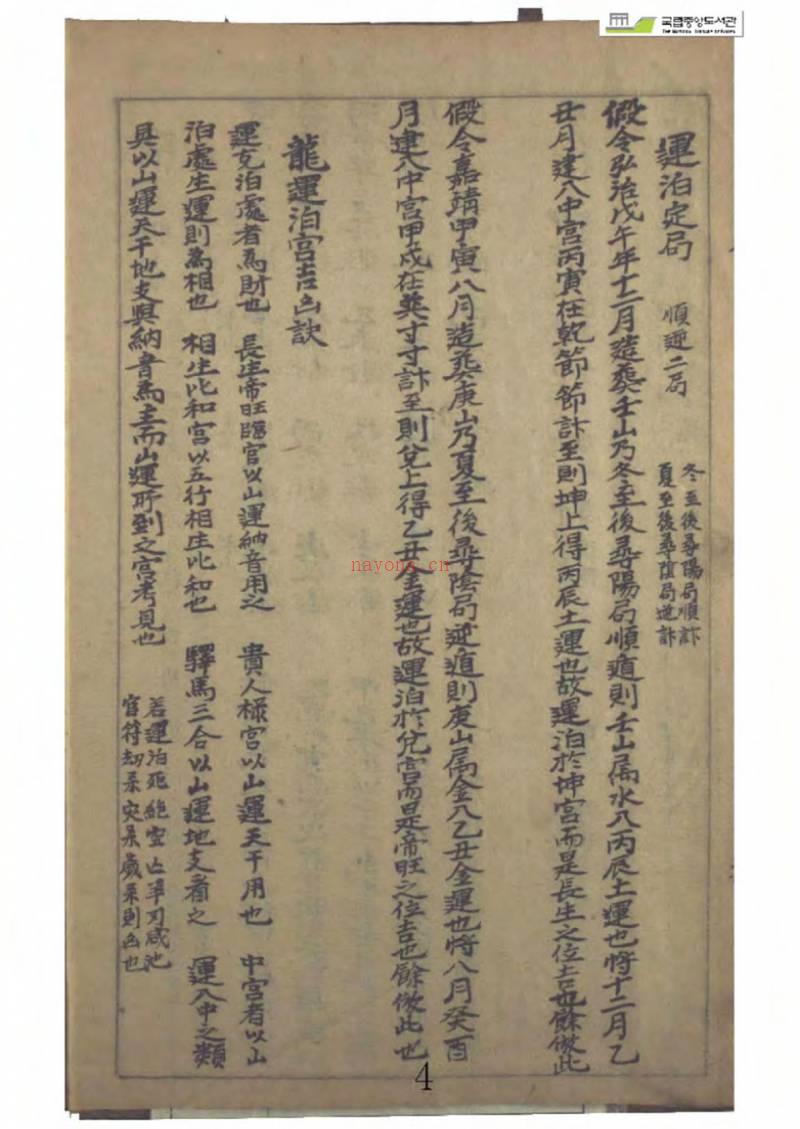 국립중앙도서관
運泊定局 順逆二局 冬至後尋陽局順訃
夏至後尋陰局逆訃
假令弘治戊午年十二月造葬壬山乃冬至後尋陽局順遁則壬山属水入丙辰土運也將十二月乙
丑月建入中宮丙寅在乾節節訃至則坤上得丙辰土運也故運泊於坤宮而是長生之位吉也餘倣此
假令嘉靖甲寅八月造葬庚山乃夏至後尋陰局逆遁則庚山属金入乙丑金運也將八月癸酉
月建入中宮甲戌在巽寸寸訃至則兌上得乙丑金運也故運泊於兌宮而是帝旺之位吉也餘倣此也
龍運泊宮吉凶訣
運克泊處者為財也 長生帝旺臨官以山運納音用之 貴人祿宮以山運天干用也 中宮者以山
泊處生運則為相也 相生比和宮以五行相生比和也 驛馬三合以山運地支看之 運入中之類
具以山運天干地支與納音為主而山運所到之宮考見也 若運泊死絶空亡
官符劫杀灾杀歲杀則凶也
nayona.cn
4